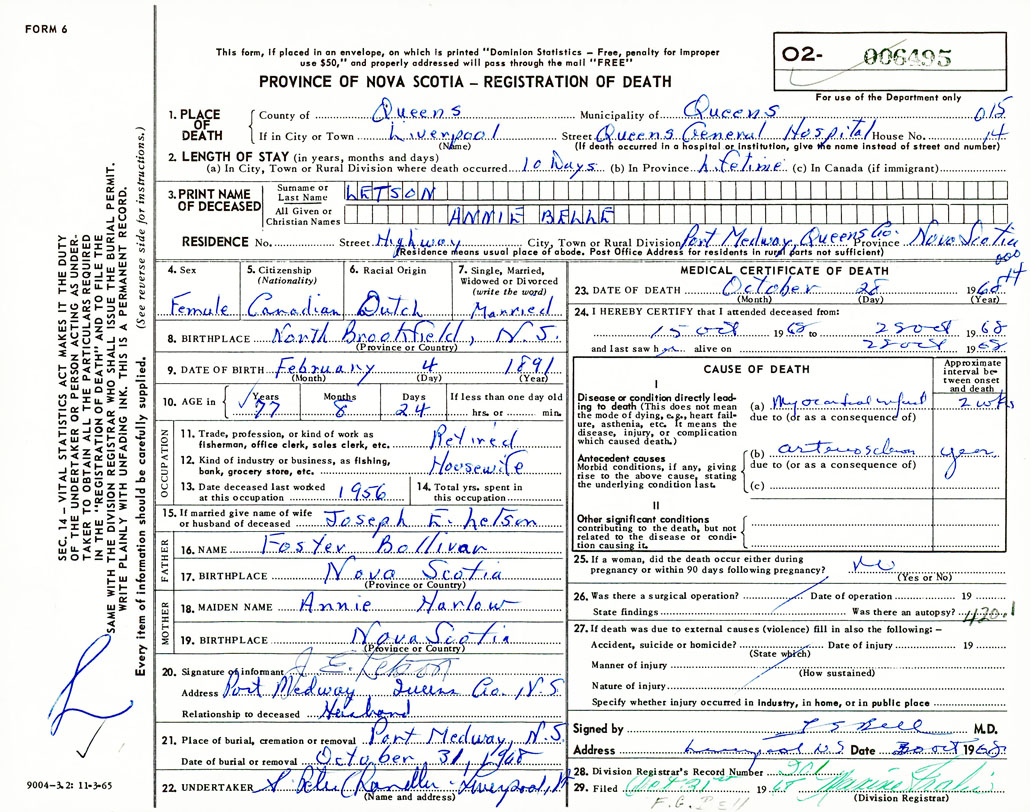 FORM 6
This form, if placed in an envelope, on which is printed "Dominion Statistics – Free, penalty for improper
use $50," and properly addressed will pass through the mail "FREE"
PROVINCE OF NOVA SCOTIA – REGISTRATION OF DEATH
O2- 006495
For use of the Department only
1. PLACE OF DEATH
County of Queens Municipality of Queens 015
If in City or Town Liverpool Street Queens General Hospital House No. 14
(Name) (If death occurred in a hospital or institution, give the name instead of street and number)
2. LENGTH OF STAY (in years, months and days)
(a) In City, Town or Rural Division where death occurred 10 Days (b) In Province Lifetime (c) In Canada (if immigrant)
3. PRINT NAME OF DECEASED
Surname or Last Name LETSON
All Given or Christian Names ANNIE BELLE
RESIDENCE No. Street Highway City, Town or Rural Division Port Medway, Queens Co. Province Nova Scotia
(Residence means usual place of abode. Post Office Address for residents in rural parts not sufficient)
000
14
4. Sex
Female
5. Citizenship
(Nationality)
Canadian
6. Racial Origin
Dutch
7. Single, Married,
Widowed or Divorced
(write the word)
Married
8. BIRTHPLACE North Brookfield, N.S.
(Province or Country)
9. DATE OF BIRTH February 4 1891
(Month) (Day) (Year)
10. AGE in Years Months Days If less than one day old
77 8 24 hrs. or min.
OCCUPATION
11. Trade, profession, or kind of work as
fisherman, office clerk, sales clerk, etc. Retired
12. Kind of industry or business, as fishing,
bank, grocery store, etc. Housewife
13. Date deceased last worked
at this occupation 1956
14. Total yrs. spent in
this occupation
15. If married give name of wife
or husband of deceased Joseph E. Letson
FATHER
16. NAME Foster Bollivar
17. BIRTHPLACE Nova Scotia
(Province or Country)
MOTHER
18. MAIDEN NAME Annie Harlow
19. BIRTHPLACE Nova Scotia
(Province or Country)
20. Signature of informant J. E. Letson
Address Port Medway Queens Co., N.S.
Relationship to deceased Husband
21. Place of burial, cremation or removal Port Medway, N.S.
Date of burial or removal October 31, 1968
22. UNDERTAKER Chandler Liverpool,
(Name and address)
MEDICAL CERTIFICATE OF DEATH
23. DATE OF DEATH October 28 1968
(Month) (Day) (Year)
24. I HEREBY CERTIFY that I attended deceased from:
15 oct 1968 to 28 oct 1968
and last saw her alive on 28 oct 1968
CAUSE OF DEATH
Approximate
interval be-
tween onset
and death
I
Disease or condition directly lead-
ing to death (This does not mean
the mode of dying, e.g., heart fail-
ure, asthenia, etc. It means the
disease, injury, or complication
which caused death.)
(a) Myocardial infarct 2 wks
due to (or as a consequence of)
Antecedent causes
Morbid conditions, if any, giving
rise to the above cause, stating
the underlying condition last.
(b) years
due to (or as a consequence of)
(c)
II
Other significant conditions
contributing to the death, but not
related to the disease or condi-
tion causing it.
25. If a woman, did the death occur either during
pregnancy or within 90 days following pregnancy? no
(Yes or No)
26. Was there a surgical operation? Date of operation 19
State findings Was there an autopsy? 420.1
27. If death was due to external causes (violence) fill in also the following: –
Accident, suicide or homicide? Date of injury 19
(State which)
Manner of injury
(How sustained)
Nature of injury
Specify whether injury occurred in industry, in home, or in public place
Signed by Bell M.D.
Address Liverpool N S Date 30 oct 1968
28. Division Registrar's Record Number 201
29. Filed Oct 31 1968
(Division Registrar)
SEC. 14 – VITAL STATISTICS ACT MAKES IT THE DUTY
OF THE UNDERTAKER OR PERSON ACTING AS UNDER-
TAKER TO OBTAIN ALL THE PARTICULARS REQUIRED
IN THE "REGISTRATION OF DEATH" AND TO FILE THE
SAME WITH THE DIVISION REGISTRAR WHO SHALL ISSUE THE BURIAL PERMIT.
WRITE PLAINLY WITH UNFADING INK. THIS IS A PERMANENT RECORD.
Every item of information should be carefully supplied. (See reverse side for instructions.)
9004-3.2: 11-3-65